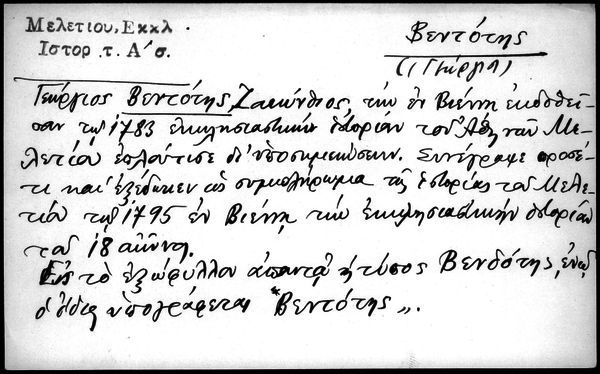 Μελετίου, Εκκλ.
Ιστορ. τ. Α´ σ.
Βεντότης
(Γεώργιος)
Γεώργιος Βεντότης, Ζακύνθιος, τὴν ἐν Βιέννῃ ἐκδοθεῖ-
σαν τῷ 1783 ἐκκλησιαστικὴν ἱστορίαν τοῦ Ἀθηνῶν Με-
λετίου ἐπλούτισε δι' ὑποσημειώσεων. Συνέγραψε προσέ-
τι καὶ ἐξέδωκεν ὡς συμπλήρωμα τῆς ἱστορίας τοῦ Μελε-
τίου τῷ 1795 ἐν Βιέννῃ τὴν ἐκκλησιαστικὴν ἱστορίαν
τοῦ 18 αἰῶνος.
Εἰς τὸ ἐξώφυλλον ἀπαντᾷ ὁ τύπος Βενδότης, ἐνῷ
ὁ ἴδιος ὑπογράφεται "Βεντότης„.